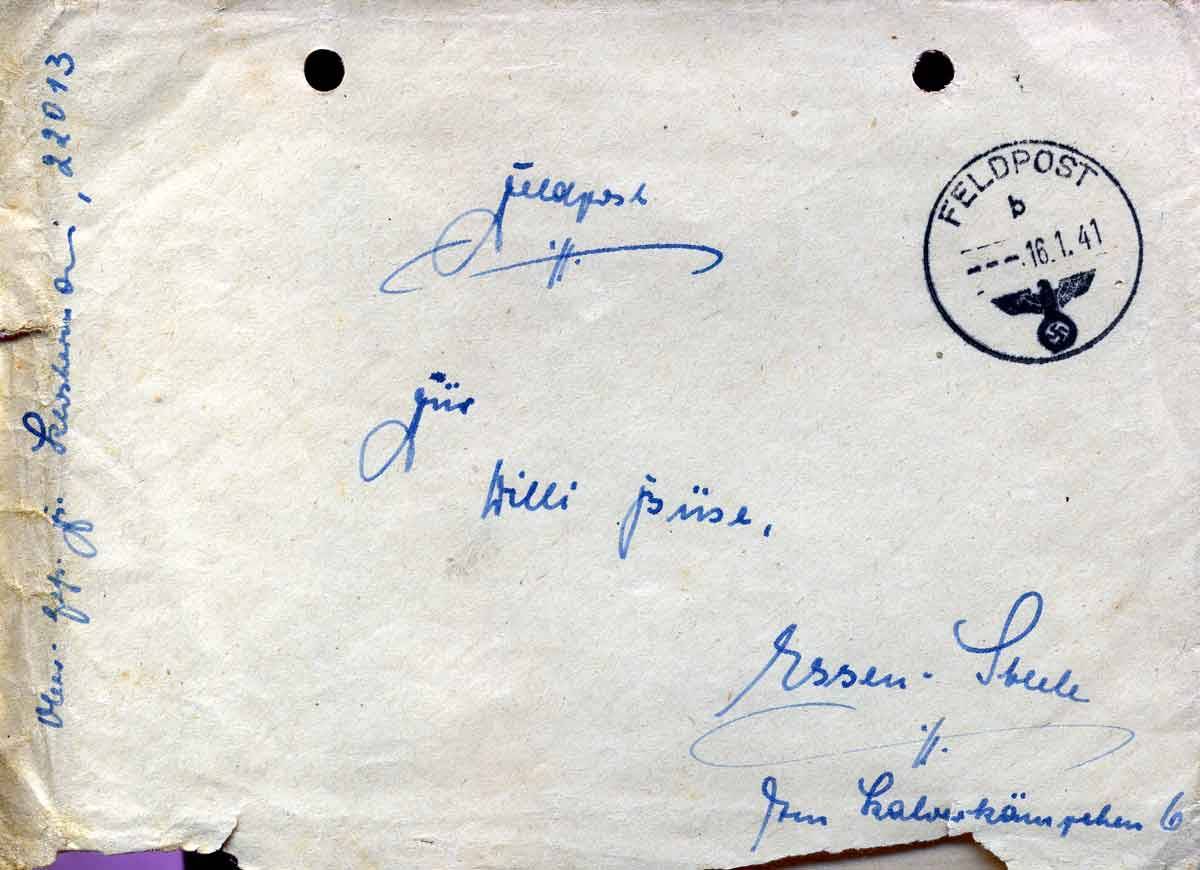 Feldpost
FELDPOST
b
---.16.1.41
Für
Willi Büse,
Essen-Steele
Im Kalverkämpchen 6
22013